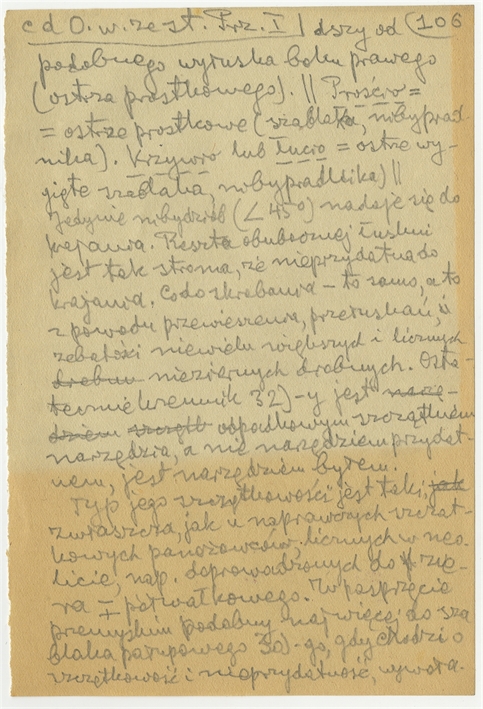 c d O. w. ze st. Prz. I | dszy od (106
podobnego wyłuska boku prawego
(ostrza prostkowego). || Prościo =
= ostrze prostkowe (szablaka, nibyprad-
nika). Krzywio lub łucio = ostrze wy-
gięte szablaka, nibypradnika) ||
Jedynie nibydziób (∠45°) nadaje się do
krajania. Reszta obubocznej łuskni
jest tak stroma, że nieprzydatna do
krajania. Co do skrobania – to samo, a to
z powodu przewieszenia, przełuskań, i
zębatości niewielu większych i licznych
drobnn nieziernych drobnych. Osta-
tecznie krzemnik 32)-y jest narzę-
dziem szczątk odpadkowym szczątkiem
narzędzia, a nie narzędziem przydat-
nem, jest narzędziem byłem.
Typ jego szczątkowości jest taki, jak
zwłaszcza, jak u naprawczych szcząt-
kowych panożowców, licznych w neo-
licie, nap. doprowadzonych do
± półwałkowego. W pasprzęcie
przemyskim podobny najwięcej do sza
blaka patupowego 30)-go, gdy chodzi o
szczętkowość i nieprzydatność, wywoła-